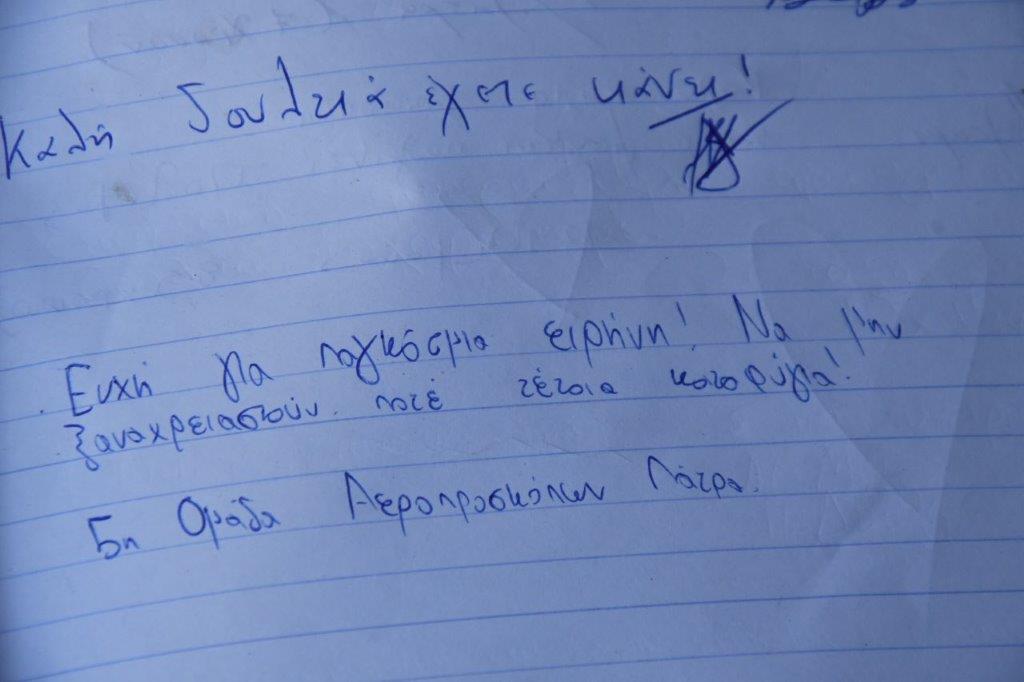 Καλή δουλειά έχετε κάνει!
Ευχή για παγκόσμια ειρήνη! Να μην
ξαναχρειαστούν ποτέ τέτοια καταφύγια!
5η Ομάδα Αεροπροσκόπων Πάτρα.